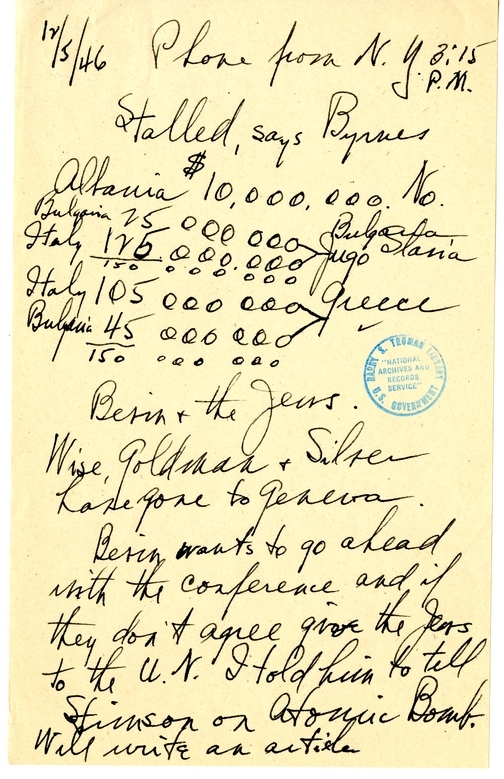 12/5/46 Phone from N.Y. 3:15
P.M.
Stalled, says Byrnes
Albania $10,000,000. No.
Bulgaria 25 000 000 Bulgaria
Italy 125 000.000 Jugo Slavia
150 000 000
Italy 105 000 000 Greece
Bulgaria 45 000 000
150 000 000
HARRY S. TRUMAN LIBRARY
"NATIONAL
ARCHIVES AND
RECORDS
SERVICE"
U.S. GOVERNMENT
Bevin & the Jews.
Wise, Goldman & Silver
have gone to Geneva.
Bevin wants to go ahead
with the conference and if
they don't agree give the Jews
to the U.N. I told him to tell
Stimson on Atomic Bomb.
Will write an article